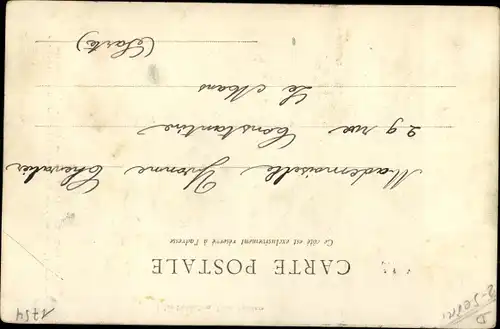 CARTE POSTALE
Ce côté est exclusivement réservé à l'adresse
Mademoiselle Yvonne Chevalier
29 rue Constantine
Le Mans
(Sarthe)
1754
D